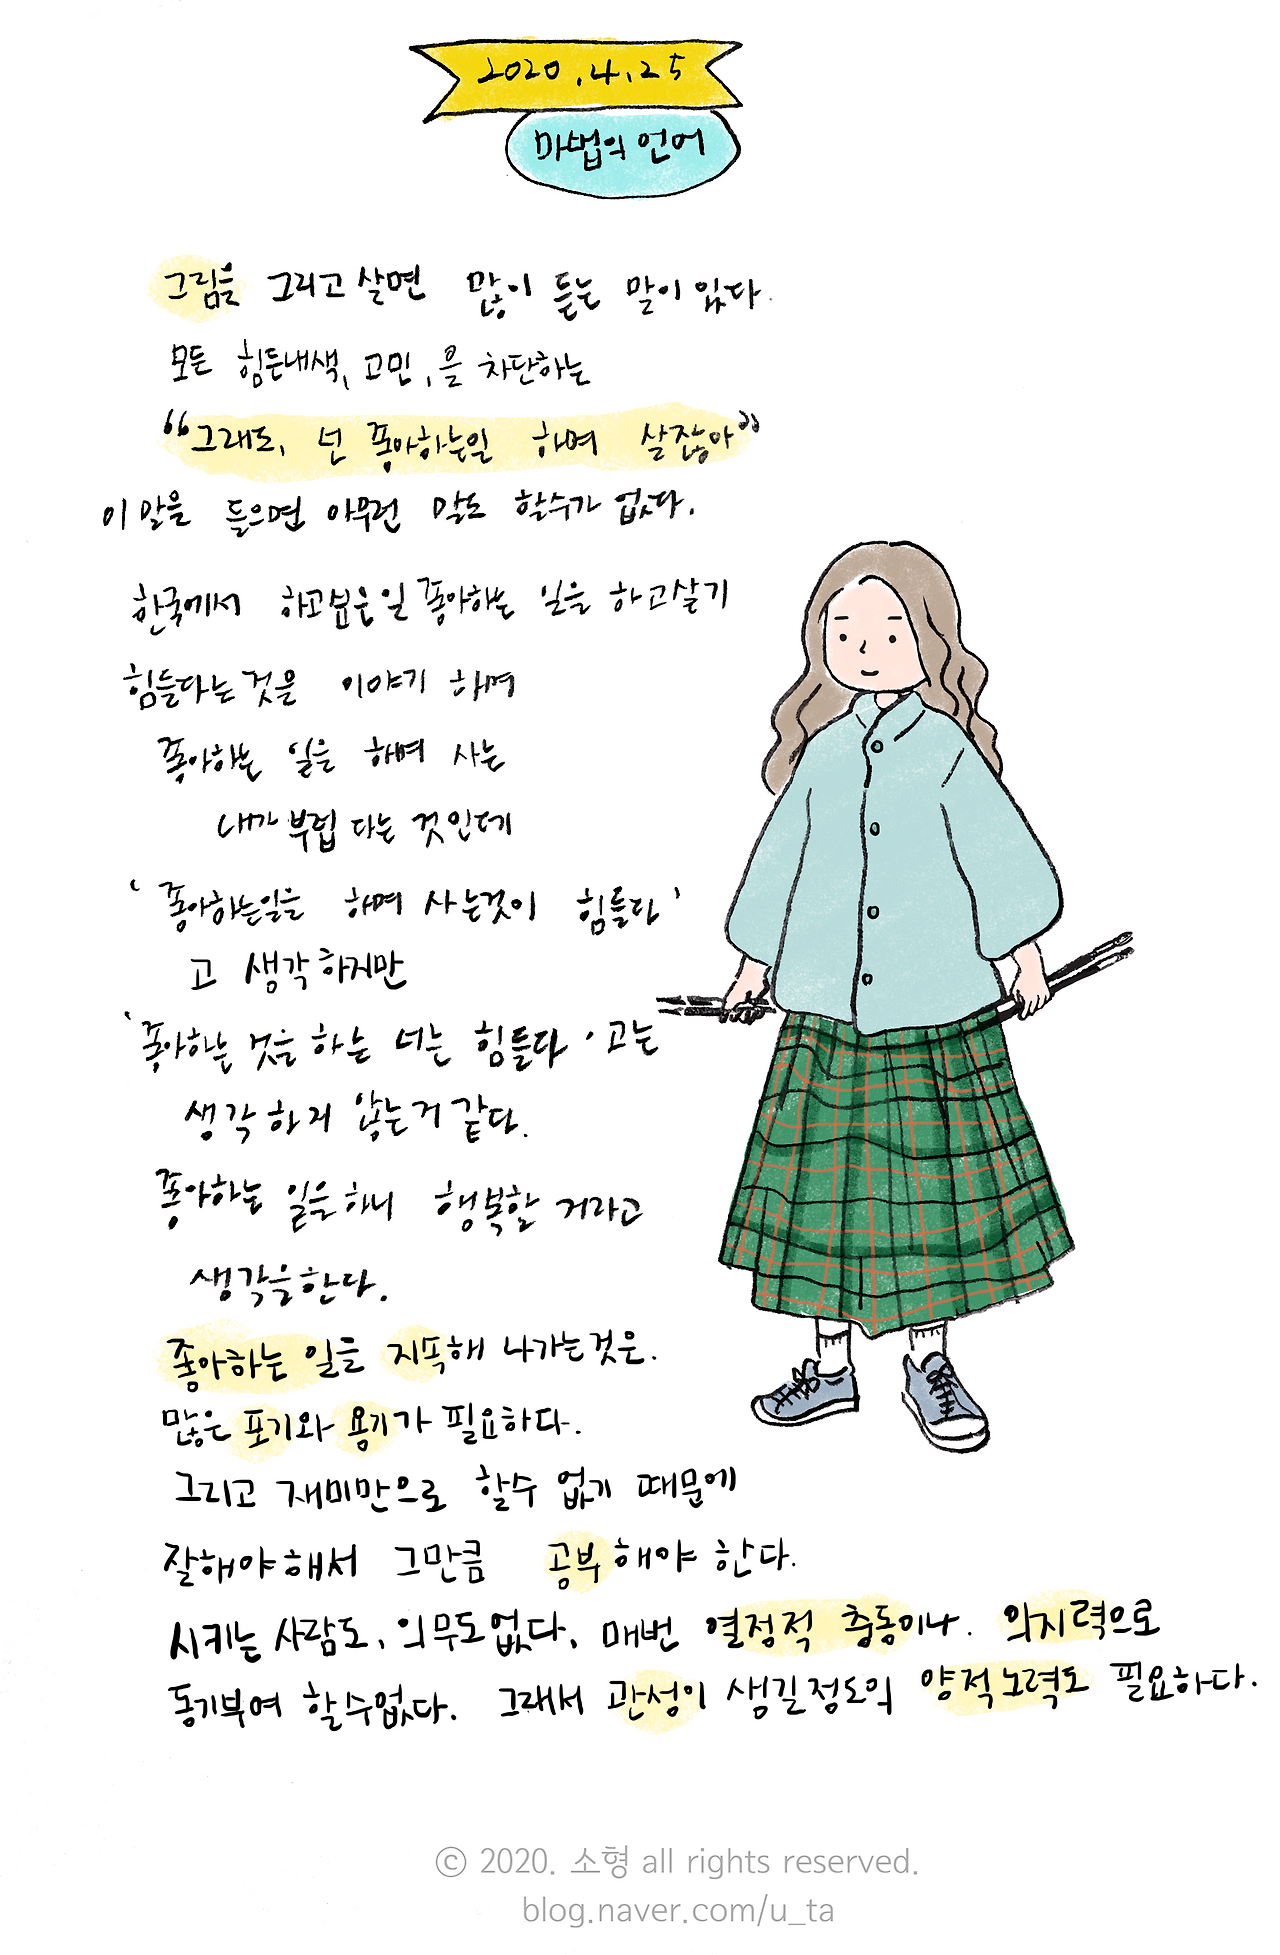 2020.4.25
마법의 언어
그림을 그리고 살면 많이 듣는 말이 있다.
모든 힘든내색, 고민, 을 차단하는
"그래도, 넌 좋아하는일 하며 살잖아"
이 말을 들으면 아무런 말도 할수가 없다.
한국에서 하고싶은일 좋아하는 일을 하고살기
힘들다는것을 이야기 하며
좋아하는 일을 하며 사는
내가 부럽 다는 것인데
'좋아하는일을 하며 사는것이 힘들다'
고 생각하지만
'좋아하는 것을 하는 너는 힘들다'고는
생각하지 않는거 같다.
좋아하는 일을하니 행복할 거라고
생각을한다.
좋아하는 일을 지속해 나가는것은.
많은 포기와 용기가 필요하다.
그리고 재미만으로 할수 없기 때문에
잘해야해서 그만큼 공부해야 한다.
시키는 사람도, 의무도없다, 매번 열정적 충동이나. 의지력으로
동기부여 할수없다. 그래서 관성이 생길정도의 양적노력도 필요하다.
© 2020. 소형 all rights reserved.
blog.naver.com/u_ta